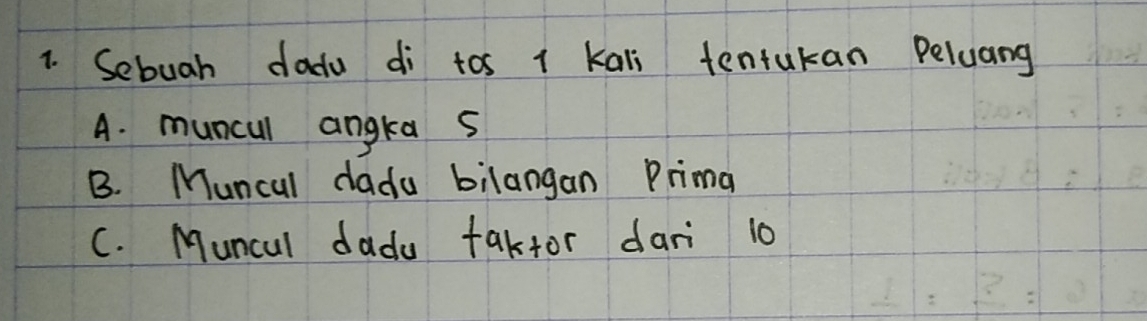 1. Sebuah dadu di tos 1 kali tentukan Peluang
A. muncul angka 5
B. Muncul dadu bilangan Prima
C. Muncul dadu faktor dari 10